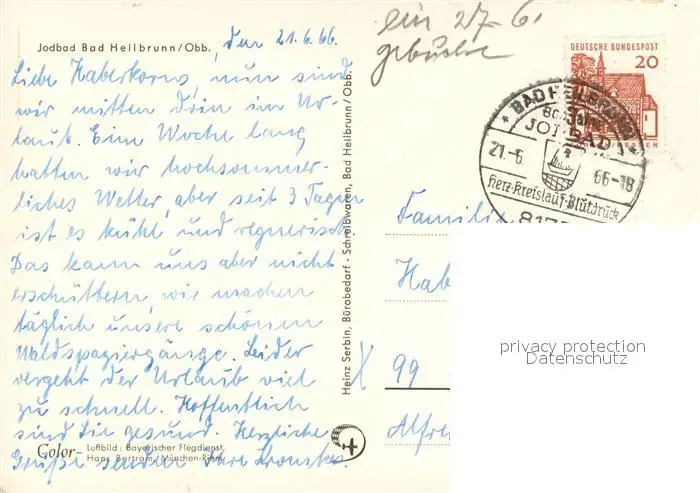 Jodbad Bad Heilbrunn/Obb.
den 21.6.66.
Liebe Haberkorns, nun sind
wir mitten drin im Ur-
laub. Eine Woche lang
hatten wir hochsommer-
liches Wetter, aber seit 3 Tagen
ist es kühl und regnerisch.
Das kann uns aber nicht
erschüttern, wir machen
täglich unsere schönen
Waldspaziergänge. Leider
vergeht der Urlaub viel
zu schnell. Hoffentlich
sind Sie gesund. Herzliche
Grüße senden Ihre
Color-
Luftbild: Bayerischer Flugdienst,
Hans Bertram, München-Riem
Heinz Serbin, Bürobedarf - Schreibwaren, Bad Heilbrunn/Obb.
ein 27. 6.
DEUTSCHE BUNDESPOST
20
BAD HEILBRUNN
JODBAD
21.-6 66-18
Herz-Kreislauf-Blutdruck
817
Familie
Hab
99
Alfr
privacy protection
Datenschutz